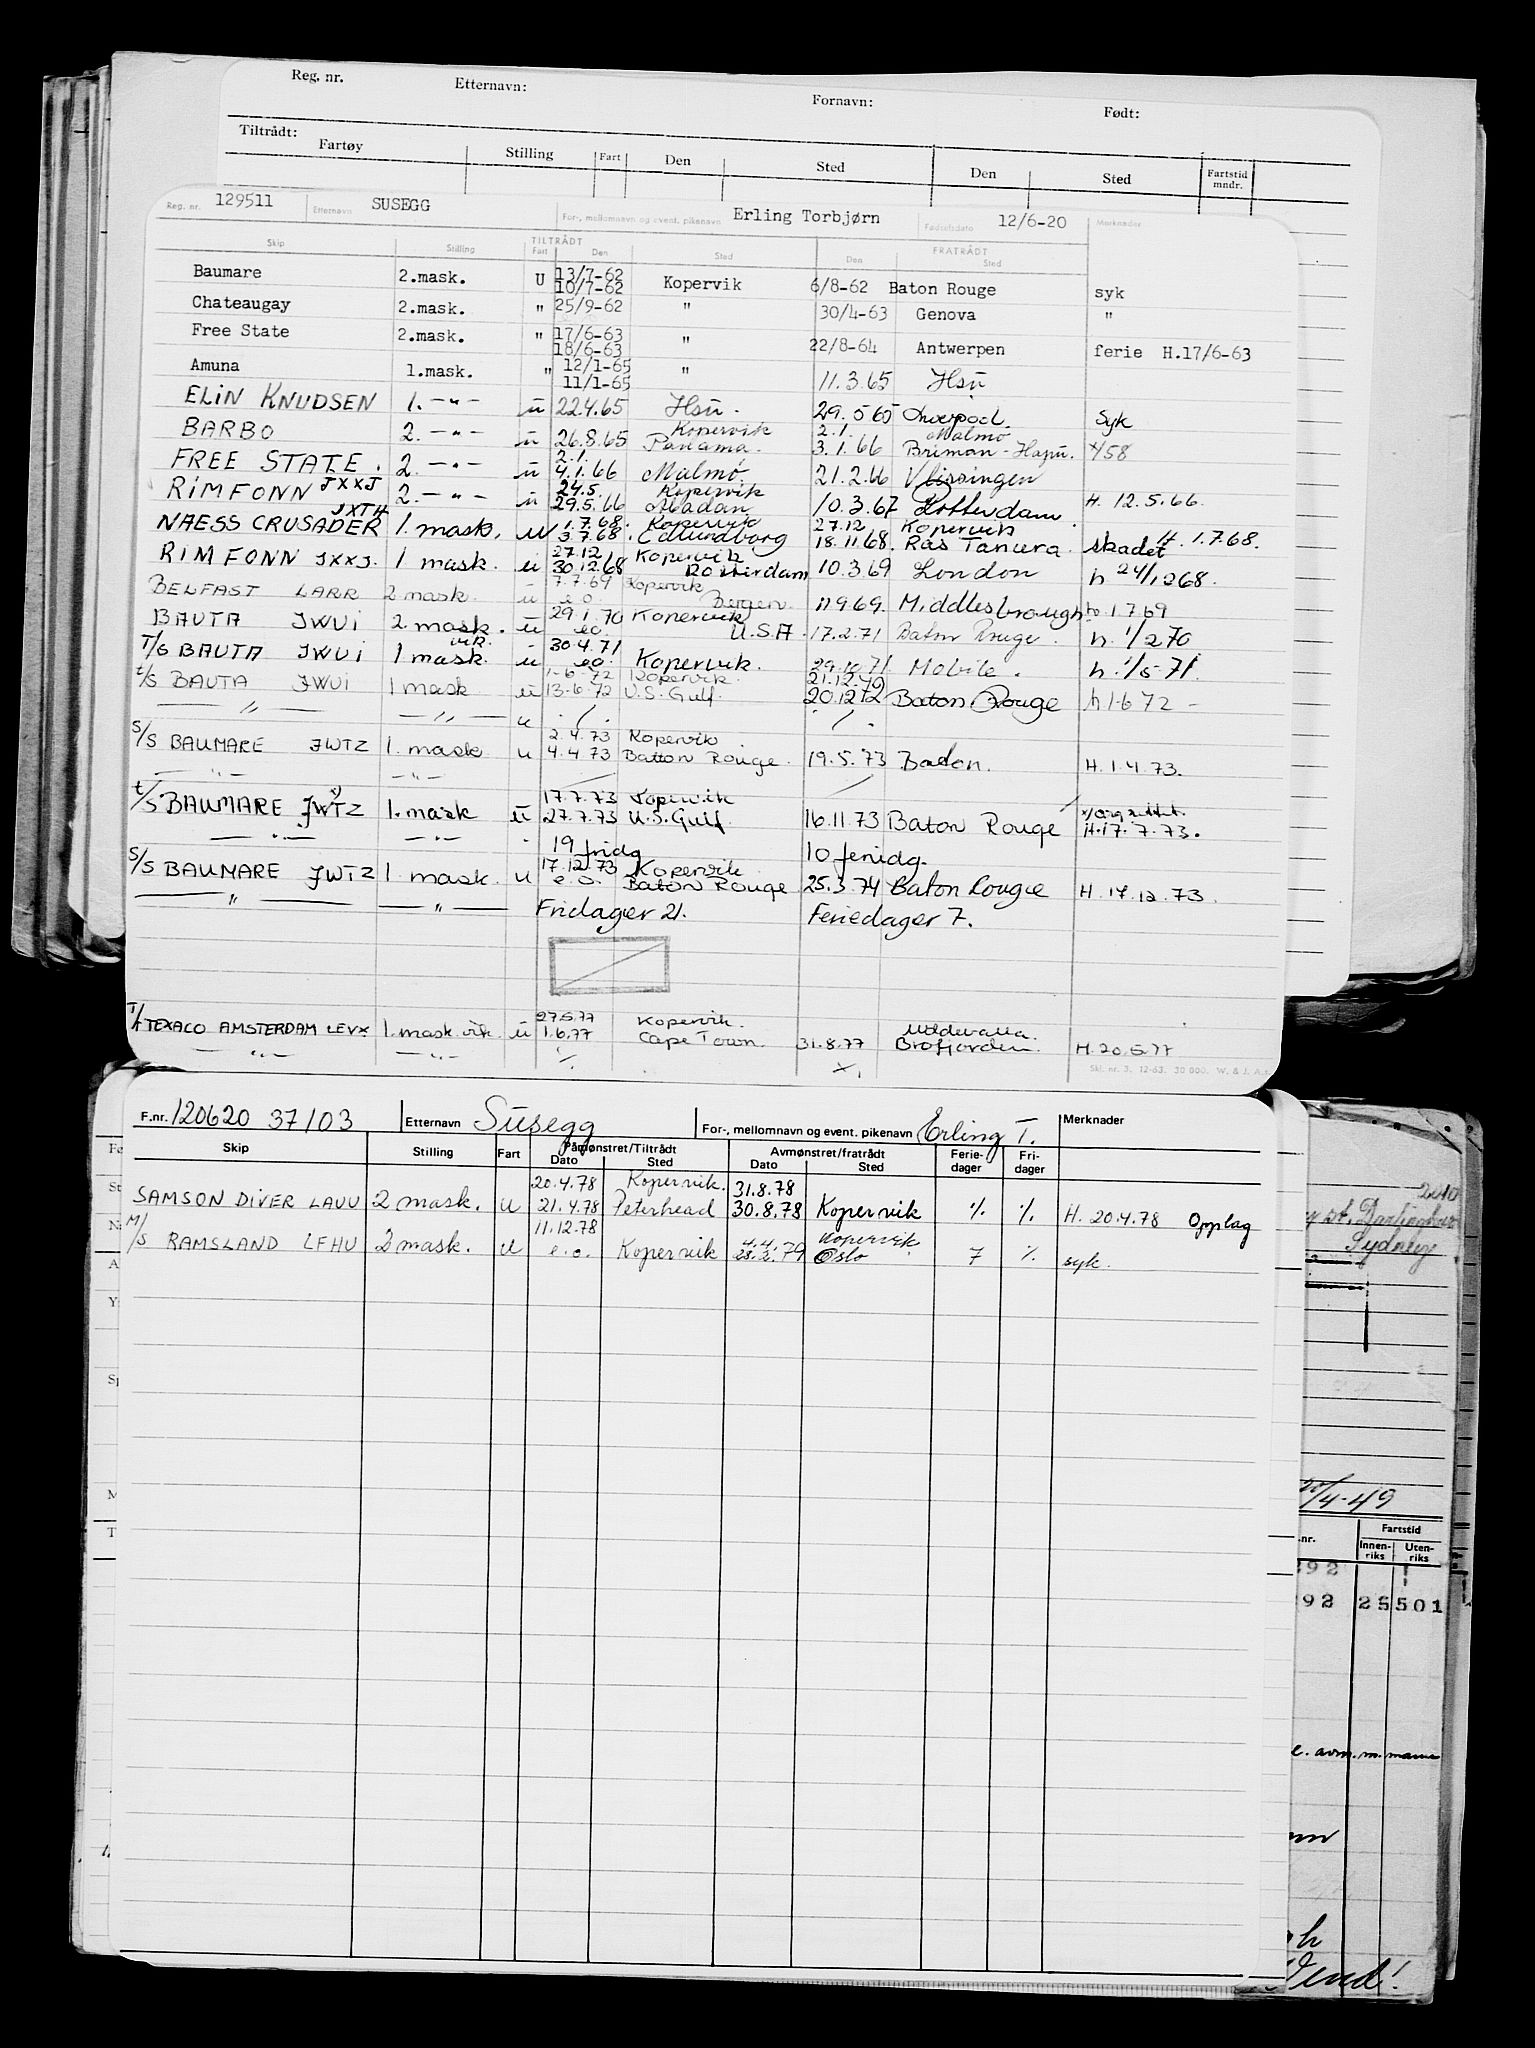 Reg. nr. Etternavn: Fornavn: Født:
Tiltrådt:
Fartøy Stilling Fart Den Sted Den Sted Fartstid mndr.
Reg. nr. 129511 Etternavn SUSEGG For-, mellomnavn og event. pikenavn Erling Torbjørn Fødselsdato 12/6-20 Merknader
TILTRÅDT FRATRÅDT
Skip Stilling Fart Den Sted Den Sted
13/7-62
Baumare 2.mask. U 10/7-62 Kopervik 6/8-62 Baton Rouge syk
Chateaugay 2.mask. " 25/9-62 " 30/4-63 Genova "
Free State 2.mask. " 17/6-63
18/6-63 " 22/8-64 Antwerpen ferie H.17/6-63
Amuna 1.mask. " 12/1-65 "
11/1-65 11.3.65 Hsü
ELIN KNUDSEN 1. -"- ü 22.4.65 Hsü. 29.5.65 Liverpool. Syk
Kopervik 2.1. Malmö
BARBO 2. -"- ü 26.8.65 Panama. 3.1.66 Briman - Hapü. 458
2.1.
FREE STATE. 2. -"- ü 4.1.66 Malmö 21.2.66 Vlissingen
24.5. Kopervik
RIMFONN JXXJ 2. -"- ü 29.5.66 Abadan 10.3.67 Rotterdam H. 12.5.66.
JXTH 1.7.68. Kopervik 27.12 Kopervik
NAESS CRUSADER 1. mask. u 3.7.68. Edmundborg 18.11.68. Ras Tanura. skadet H. 1.7.68.
27.12 Kopervik
RIMFONN JXXJ. 1 mask. ü 30.12.68 Rotterdam 10.3.69 London h 24/1268.
7.7.69 Kopervik
BELFAST LARR 2 mask ü e.o. Bergen 17.9.69. Middlesbrough h. 1.7.69
29.1.70 Kopervik
BAUTA JWUI 2. mask. ü eo. U.S.A. 17.2.71 Baton Rouge. h. 1/2 70
vik. 30.4.71
T/S BAUTA JWUI 1 mask. ü eo. Kopervik. 29.10.71 Mobile. h. 1/5-71.
1-6-72 Kopervik. 21.12.72
t/s BAUTA JWUI 1 mask ü 13-6-72 U.S. Gulf. 20.12 72 Baton Rouge h 1-6 72 -
— " — — " — u ./. ./.
2.4.73 Kopervik
S/S BAUMARE JWTZ 1. mask u 4.4.73 Batton Rouge. 19.5.73 Baton. H. 1.4.73.
— " — -"- / /
17.7.73 Kopervik
t/s. BAUMARE JWTZ 1. mask ü 27.7.73 U.S. Gulf. 16.11.73 Baton Rouge H.17.7.73.
— " — -"- 19 fridg 10 feridg.
17.12.73 Kopervik
S/S BAUMARE JWTZ 1 mask. u e.o. Baton Rouge 25.3.74 Baton Rouge H. 17.12.73.
— " — — " — Fridager 21. Feriedager 7.
27.5.77 Kopervik. Uddevalla.
T/T TEXACO AMSTERDAM LEVX 1. mask. vik. ü 1.6.77 Cape Town. 31.8.77 Brofjorden. H. 20.5.77
— " — -"- ./. ./.
Skl. nr. 3. 12-63. 30 000. W. & J. A.s.
F.nr. 120620 37103 Etternavn Susegg For-, mellomnavn og event. pikenavn Erling T. Merknader
Skip Stilling Fart Påmønstret/Tiltrådt Avmønstret/fratrådt Ferie-dager Fri-dager
Dato Sted Dato Sted
20.4.78 Kopervik. 31.8.78
SAMSON DIVER LAUU 2 mask. u 21.4.78 Peterhead 30.8.78 Kopervik ./. ./. H. 20.4.78 Opplag
11.12.78 4.4. Kopervik
M/S RAMSLAND LFHU 2 mask. u e.o. Kopervik 28.2.79 Oslo 7 ./. syk.
Sydney
/4-49
.nr. Fartstid
Innen-riks Uten-riks
92
92 25 501
e. avm. m. mama
Vend!